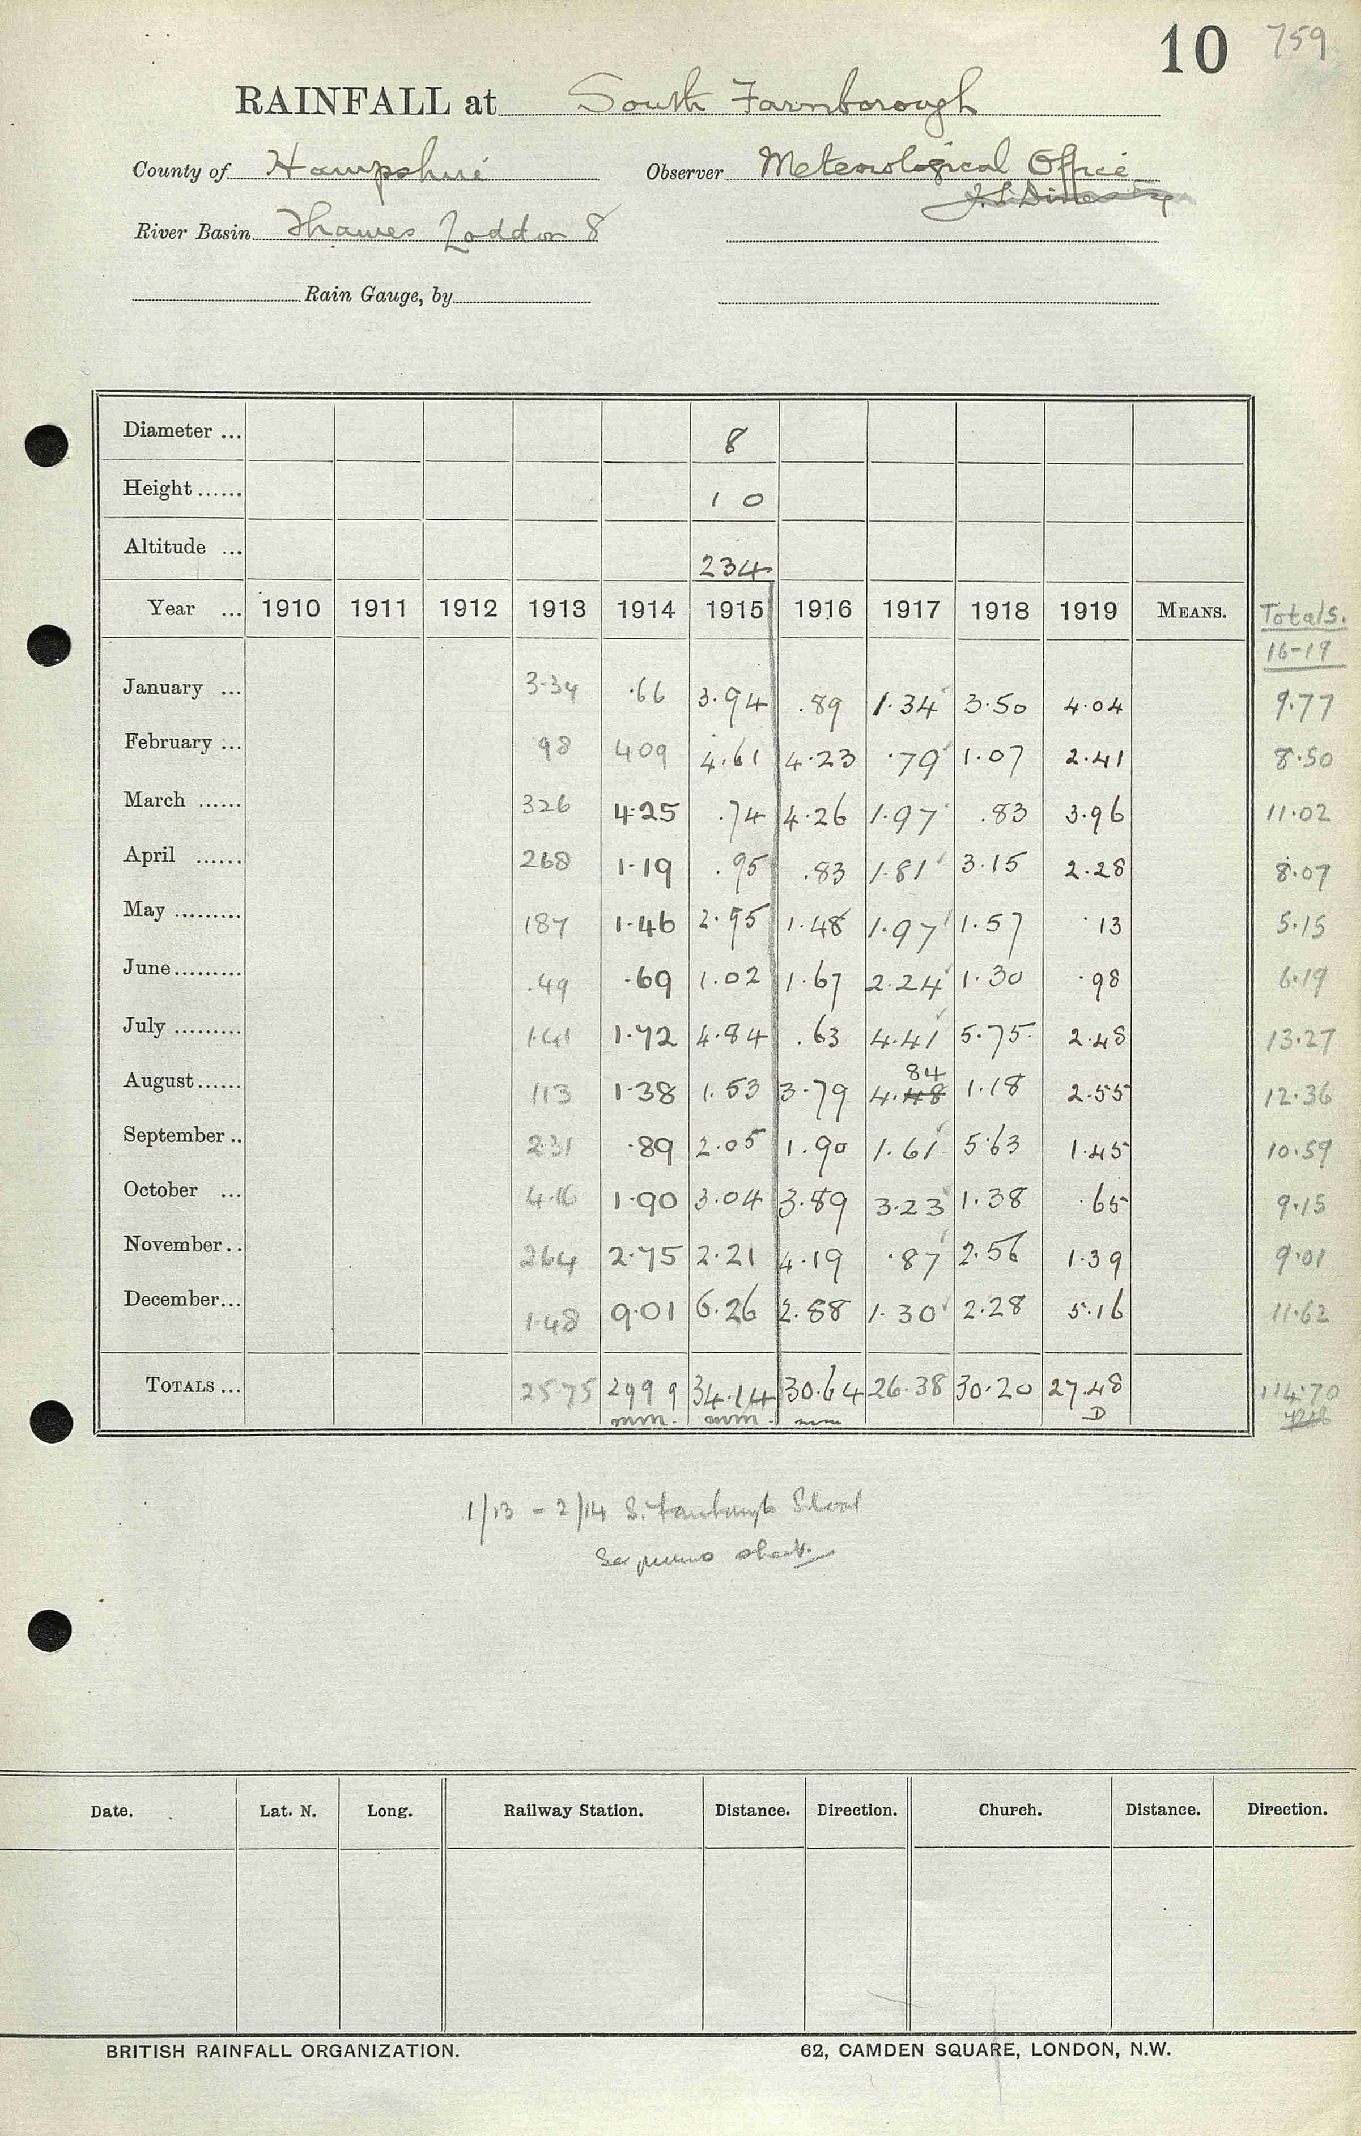 10 759
RAINFALL at South Farnborough
County of Hampshire Observer Meteorological Office
River Basin Thames Loddon 8
Rain Gauge, by
Diameter ... 8
Height ...... 1 0
Altitude ... 234
Year ... 1910 1911 1912 1913 1914 1915 1916 1917 1918 1919 MEANS. Totals.
16-19
January ... 3.34 .66 3.94 .89 1.34 3.50 4.04 9.77
February ... 98 409 4.61 4.23 .79 1.07 2.41 8.50
March ...... 326 4.25 .74 4.26 1.97 .83 3.96 11.02
April ...... 268 1.19 .95 .83 1.81 3.15 2.28 8.07
May ......... 187 1.46 2.95 1.48 1.97 1.57 .13 5.15
June ......... .49 .69 1.02 1.67 2.24 1.30 .98 6.19
July ......... 1.41 1.72 4.84 .63 4.41 5.75 2.48 13.27
84
August ...... 113 1.38 1.53 3.79 4.48 1.18 2.55 12.36
September .. 2.31 .89 2.05 1.90 1.61 5.63 1.45 10.59
October ... 4.16 1.90 3.04 3.89 3.23 1.38 .65 9.15
November .. 264 2.75 2.21 4.19 .87 2.56 1.39 9.01
December ... 1.48 9.01 6.26 2.88 1.30 2.28 5.16 11.62
TOTALS ... 2575 299 9 34.14 30.64 26.38 30.20 27.48 114.70
mm. mm. mm D
1/13 - 2/14 S. Farnborough School
sheet
Date. Lat. N. Long. Railway Station. Distance. Direction. Church. Distance. Direction.
BRITISH RAINFALL ORGANIZATION. 62, CAMDEN SQUARE, LONDON, N.W.